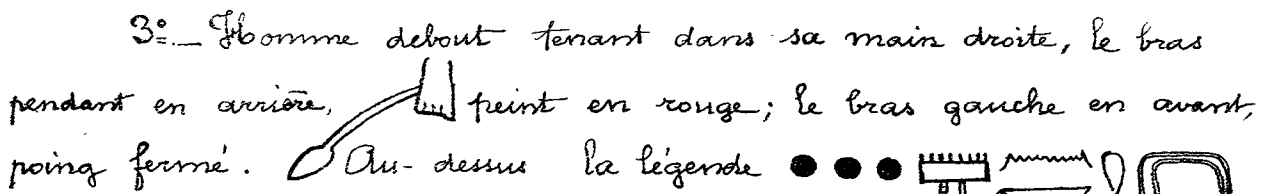 3º._ Homme debout tenant dans sa main droite, le bras
pendant en arrière, peint en rouge; le bras gauche en avant,
poing fermé. Au-dessus la légende